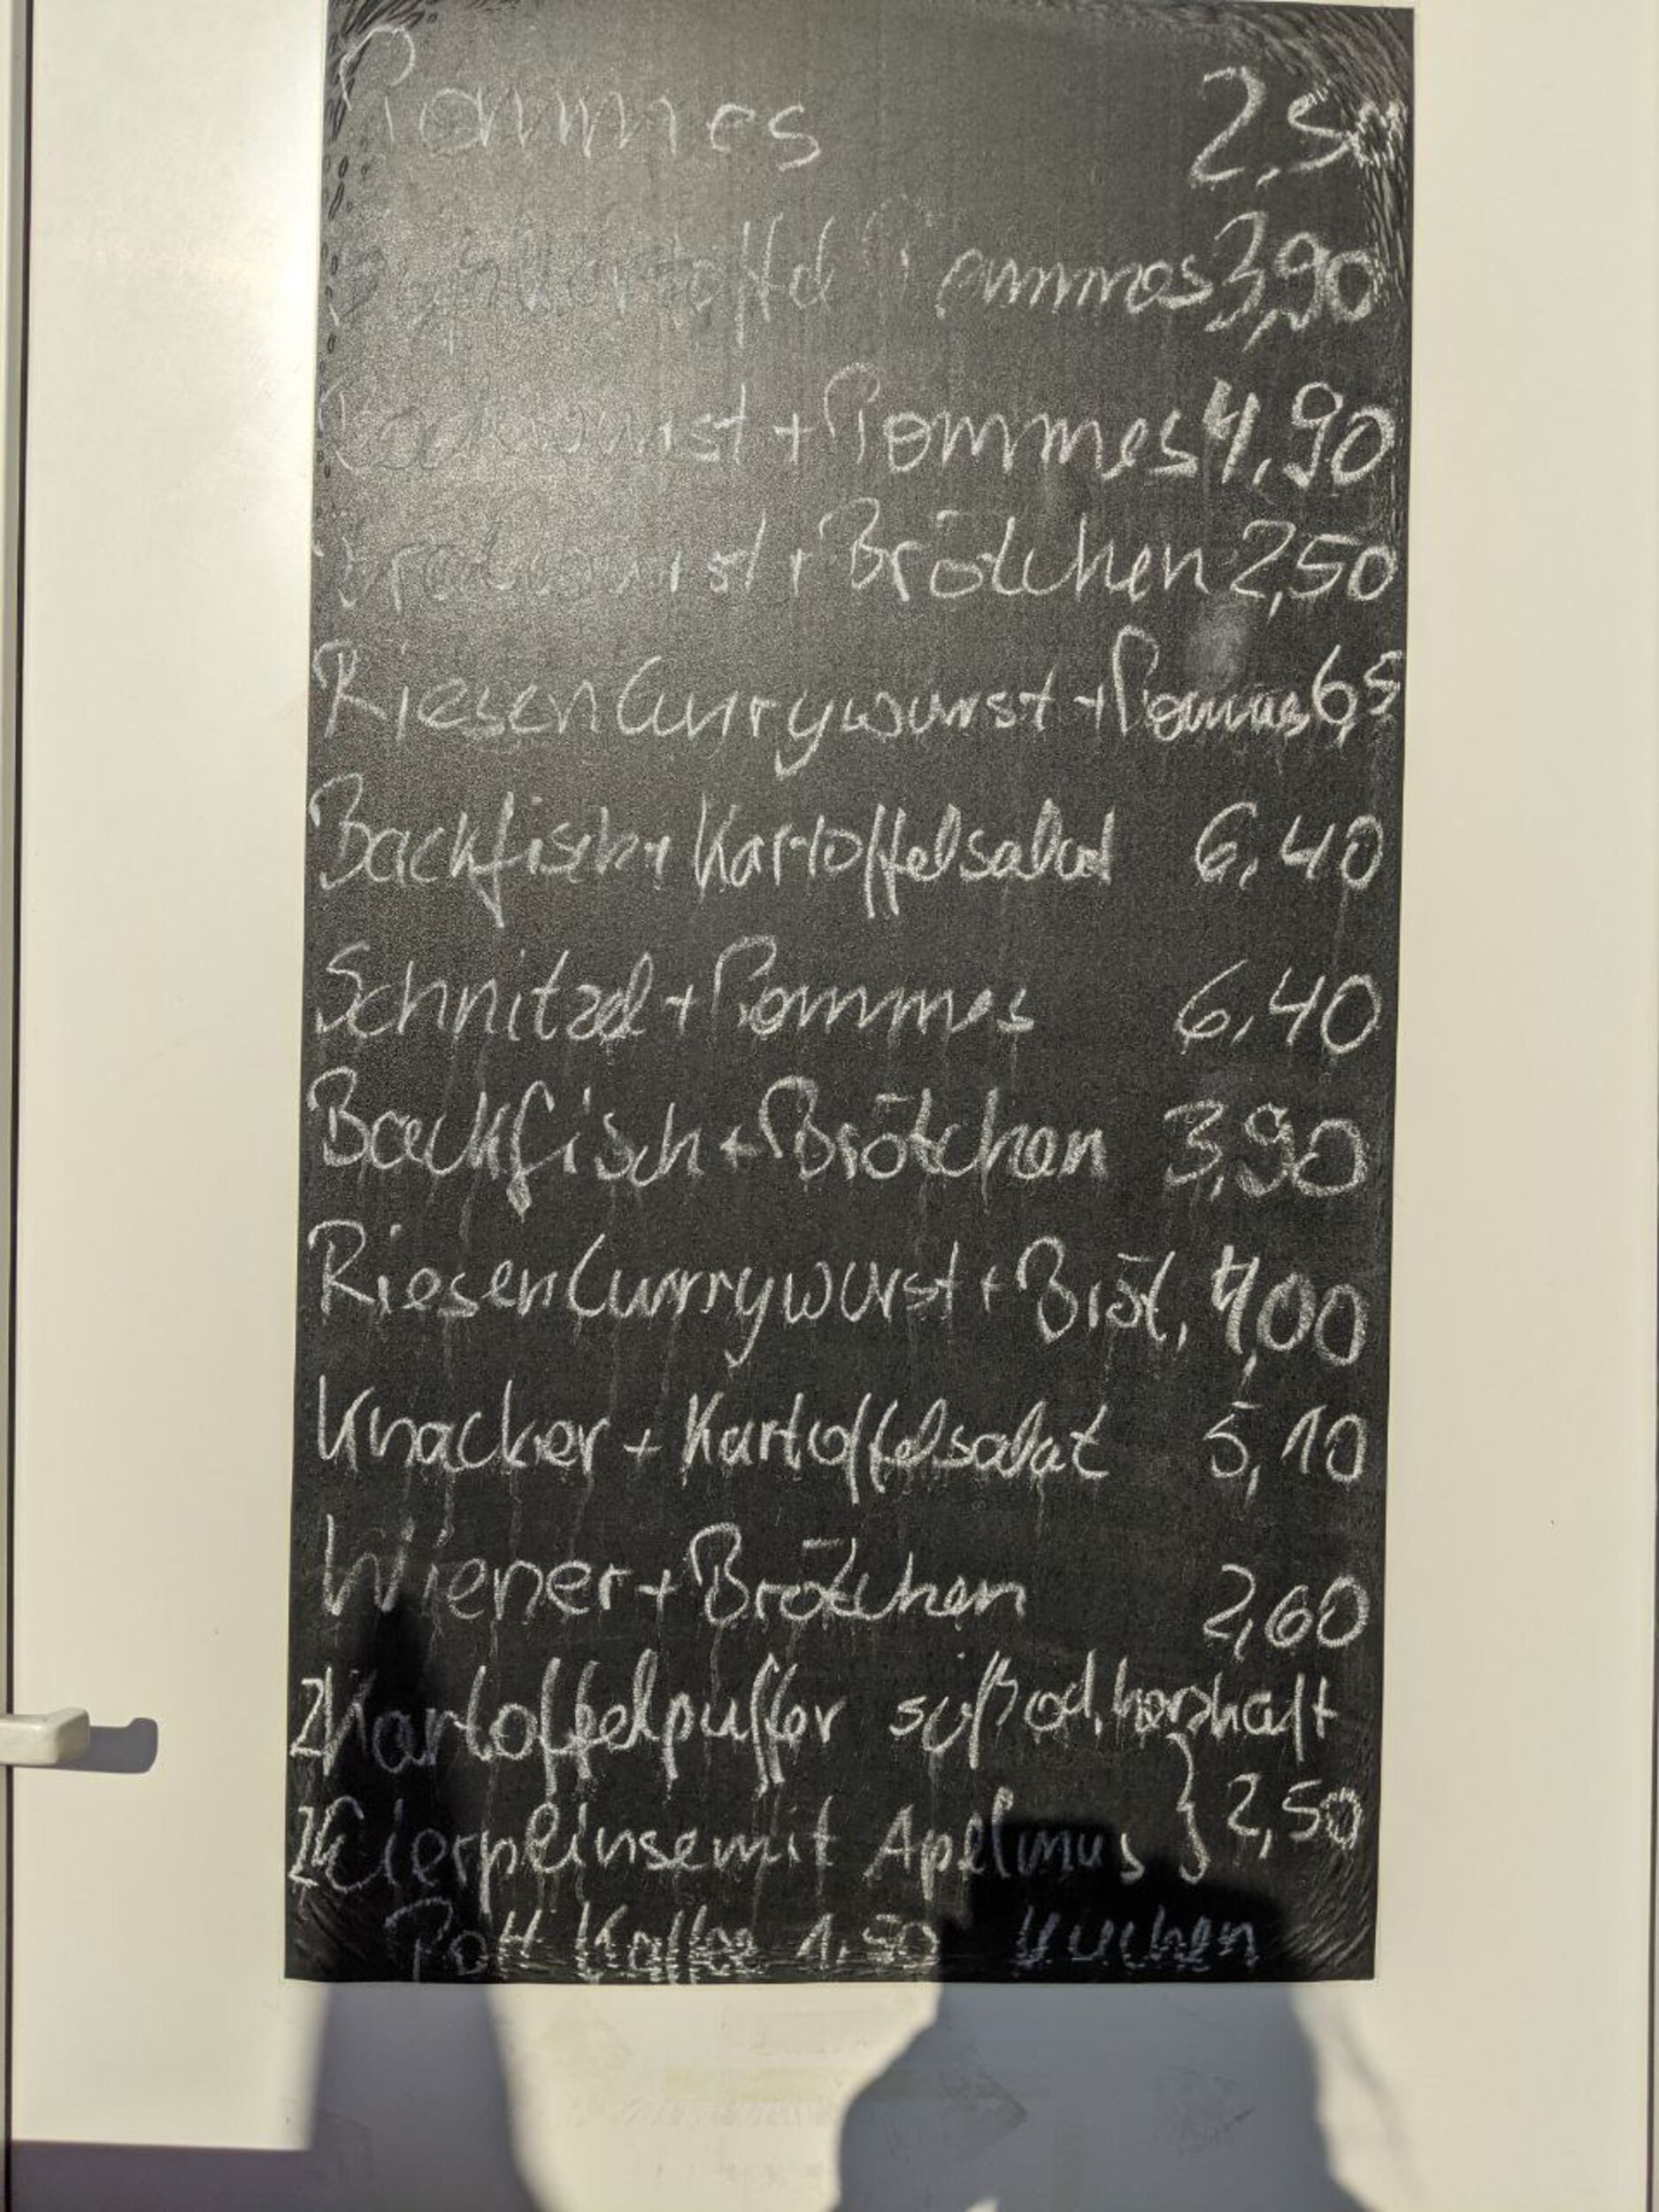 Pommes 2,50
Süßkartoffel Pommes 3,90
Bockwurst + Pommes 4,90
Bratwurst + Brötchen 2,50
Riesen Currywurst + Pommes 6,5
Backfisch + Kartoffelsalat 6,40
Schnitzel + Pommes 6,40
Backfisch + Brötchen 3,90
Riesen Currywurst + Bröt. 4,00
Knacker + Kartoffelsalat 5,10
Wiener + Brötchen 2,60
2 Kartoffelpuffer süß od. herzhaft
2 Eierplinse mit Apelmus } 2,50
Pott Kaffee 1,50 Kuchen